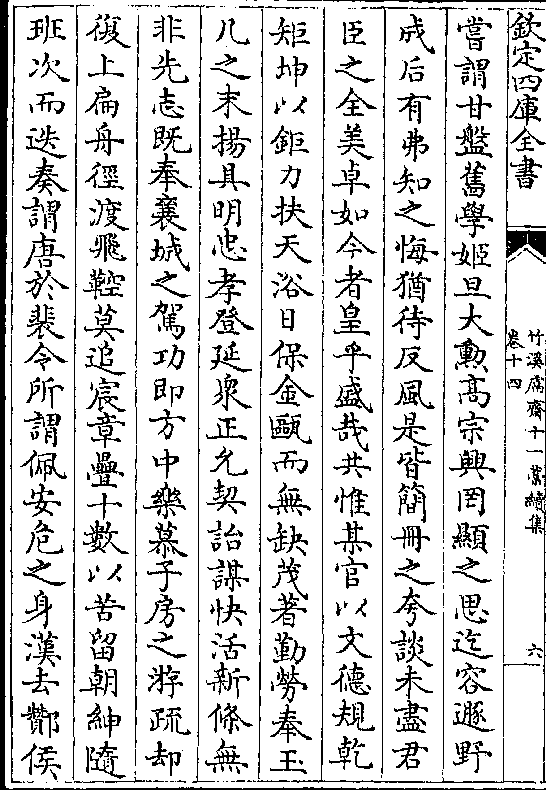 欽定四庫全書
竹溪鬳齋十一藁續集
卷十四
六
嘗謂甘盤舊學姬旦大勲高宗興罔顯之思迄容遯野
成后有弗知之悔猶待反風是皆簡冊之夸談未盡君
臣之全美卓如今者皇乎盛哉共惟某官以文德規乾
矩坤以鉅力扶天浴日保金甌而無缺茂著勤勞奉玉
几之末揚具明忠孝登延衆正允契詒謀快活新條無
非先志既奉襄城之駕功即方中樂慕子房之游疏却
復上扁舟徑渡飛鞚莫追宸章疊十數以苦留朝紳隨
班次而迭奏謂唐於裴令所謂佩安危之身漢去酇侯